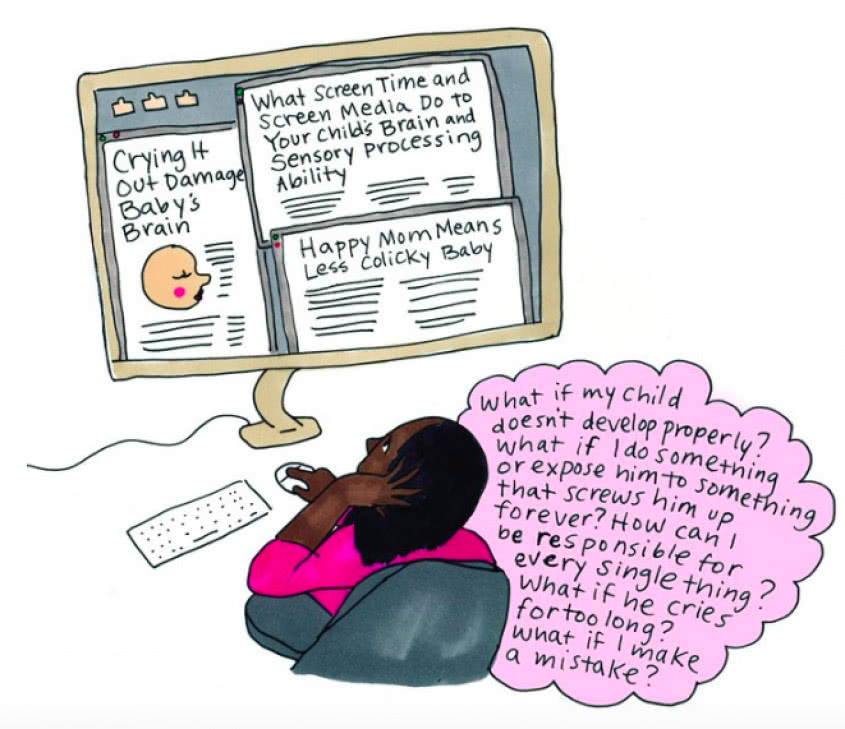 Crying It
Out Damage
Baby's
Brain
What Screen Time and
Screen Media Do to
Your Child's Brain and
Sensory Processing
Ability
Happy Mom Means
Less Colicky Baby
What if my child
doesn't develop properly?
What if I do something
or expose him to something
that screws him up
forever? How can I
be responsible for
every single thing?
What if he cries
for too long?
What if I make
a mistake?